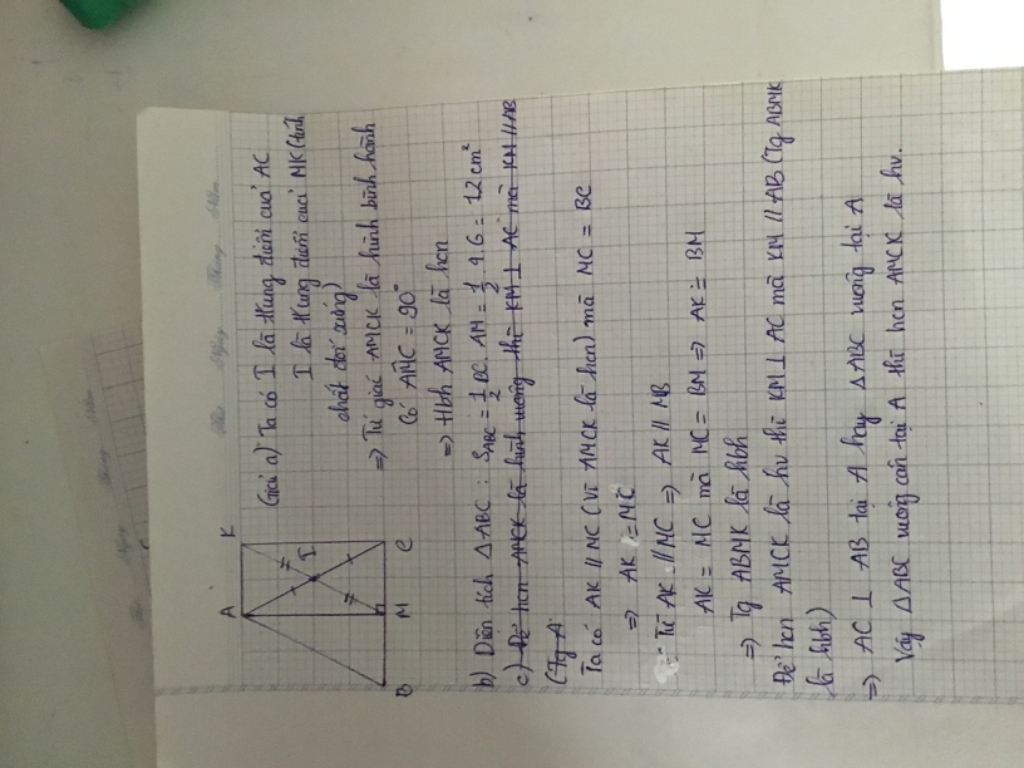 A
K
I
B
M
C
Giải a) Ta có I là trung điểm của AC
I là trung điểm của MK (tính
chất đối xứng)
=> Tứ giác AMCK là hình bình hành
Có AMC = 90°
=> Hbh AMCK là hcn
b) Diện tích △ABC : S_ABC = 1/2 BC. AM = 1/2 4.6 = 12cm²
c) Để hcn AMCK là hình vuông thì KM ⊥ AC mà KM // AB
(Tg A
Ta có AK // MC (vì AMCK là hcn) mà MC = BC
=> AK = MC
Từ AK // MC => AK // MB
AK = MC mà MC = BM => AK = BM
=> Tg ABMK là hbh
Để hcn AMCK là hv thì KM ⊥ AC mà KM // AB (Tg ABMK
là hbh)
=> AC ⊥ AB tại A hay △ABC vuông tại A
Vậy △ABC vuông cân tại A thì hcn AMCK là hv.